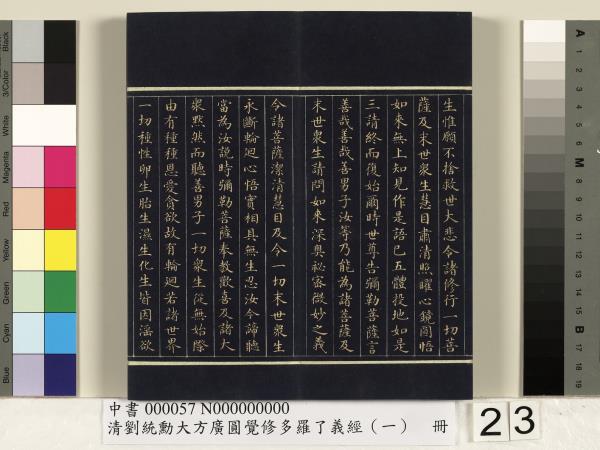 生惟願不捨救世大悲令諸修行一切菩
薩及末世眾生慧目肅清照曜心鏡圓悟
如來無上知見作是語已五體投地如是
三請終而復始爾時世尊告彌勒菩薩言
善哉善哉善男子汝等乃能為諸菩薩及
末世眾生請問如來深奧祕密微妙之義
令諸菩薩潔清慧目及令一切末世眾生
永斷輪迴心悟實相具無生忍汝今諦聽
當為汝說時彌勒菩薩奉教歡喜及諸大
眾默然而聽善男子一切眾生從無始際
由有種種恩愛貪欲故有輪迴若諸世界
一切種性卵生胎生濕生化生皆因淫欲
中書 000057 N000000000
清劉統勳大方廣圓覺修多羅了義經(一) 冊
23
Black
3/Color
White
Magenta
Red
Yellow
Green
Cyan
Blue
A
1
2
3
4
5
6
M
8
9
10
11
12
13
14
15
B
17
18
19